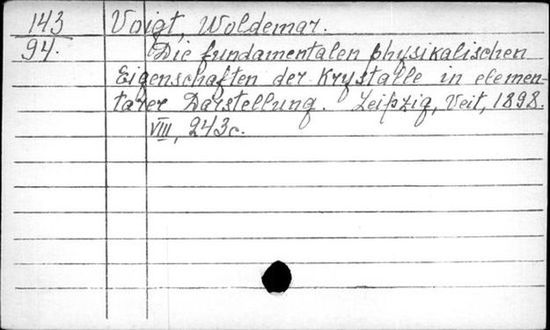 143
94.
Voigt, Woldemar.
Die fundamentalen physikalischen
Eigenschaften der Krystalle in elemen-
tarer Darstellung. Leipzig, Veit, 1898.
VIII, 243c.